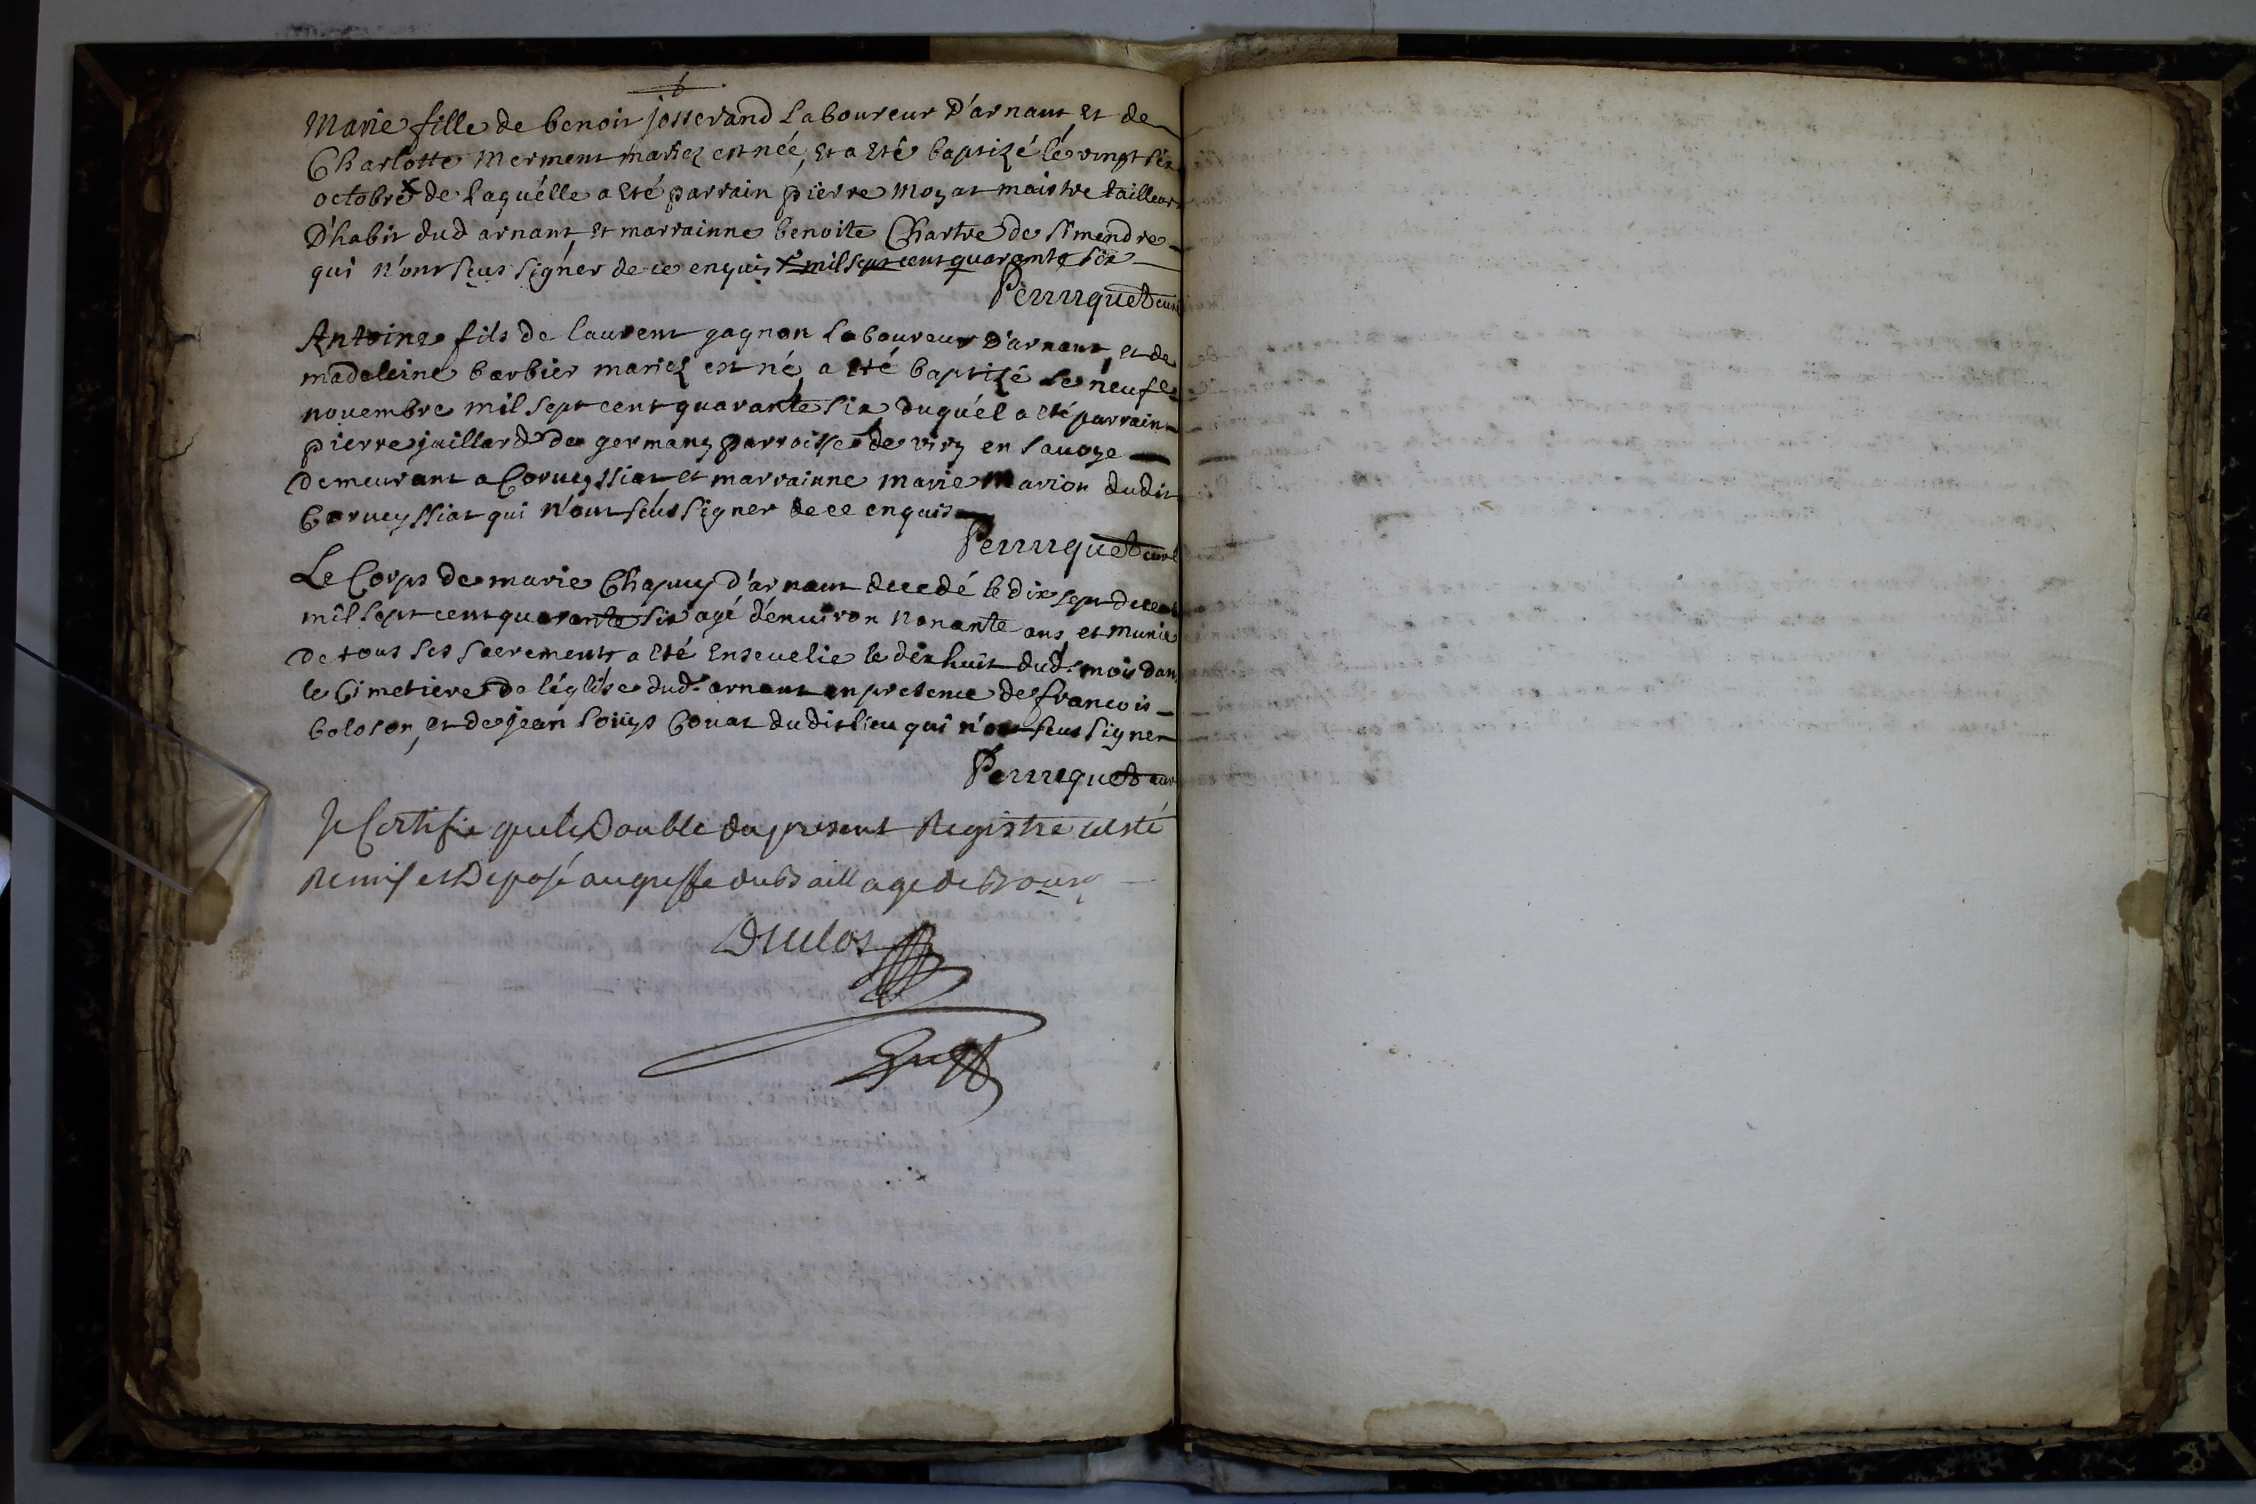 6
Marie fille de benoit josserand Laboureur D'arnant et de
Charlotte merment mariez est née, et a eté baptizé lé vingt six
octobre x de laquélle a eté parrain pierre moyat maistre tailleur
D'habit dud arnant et marrainne benoite Chartre de simendre
qui n'ont seus signer de ce enquis x mil sept cent quarante six
Perruquet curé
Antoine fils de laurent gagnon Laboureur D'arnant, et de
madeleine barbier mariez est né, a eté baptizé le neufe
novembre mil sept cent quarante six duquél a eté parrain
pierre juillard de germany parroisse de viry en Savoye
demeurant a Corveyssiat et marrainne marie marion dudit
Corveyssiat qui n'ont séus signer de ce enquis
Perruquet curé
Le Corps de marie Chapuy d'arnant decedé le dix sept decemb
mil sept cent quarante six agé d'environ nonante ans, et munie
de tous ses sacrements a eté ensevelie le dix huit dud. mois dans
le Cimetiere de léglise dud. arnant en presence de francois
boloson, et de jean louys Covat dudit lieu qui n'ont seus signer
Perruquet curé
Je Certifie que le Double du present Registre a esté
Remis et Deposé au greffe du Baillage de Bourg
Duclos